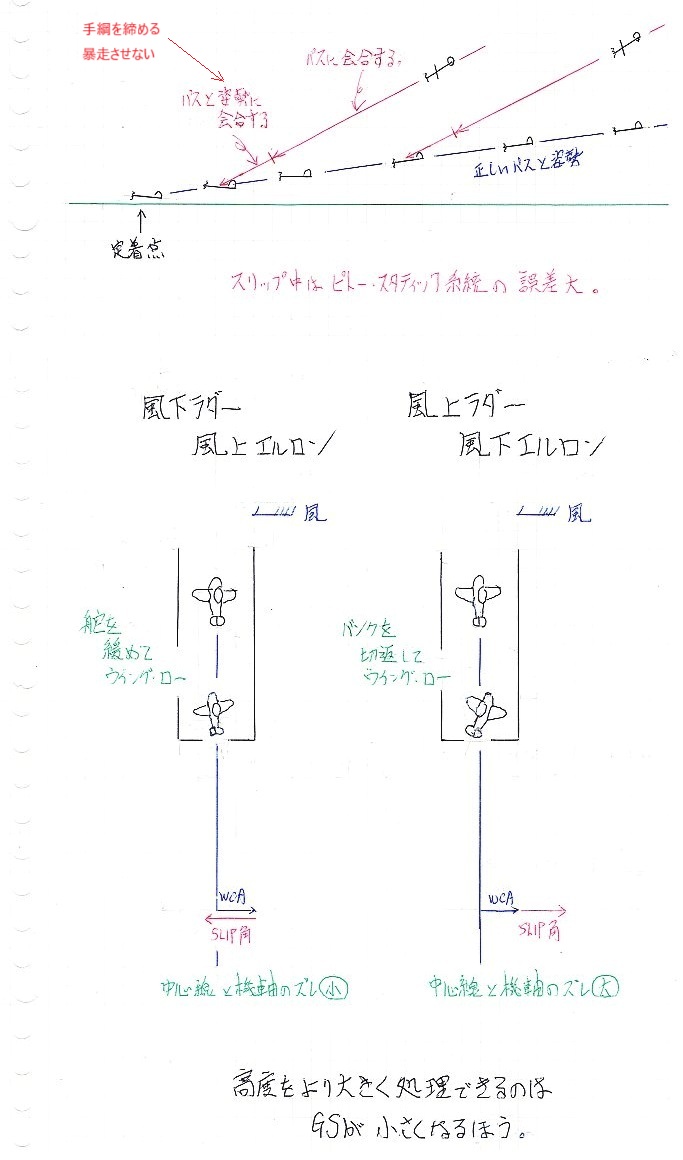 手綱を締める
暴走させない
パスに会合する。
パスと姿勢に
会合する
正しいパスと姿勢
定着点
スリップ中は ピトー・スタティック系統の 誤差大。
風下ラダー
風上エルロン
風上ラダー
風下エルロン
風
風
舵を
緩めて
ウイング・ロー
バンクを
切返して
ウイング・ロー
WCA
SLIP角
WCA
SLIP角
中心線と機軸のズレ小
中心線と機軸のズレ大
高度をより大きく処理できるのは
GSが小さくなるほう。